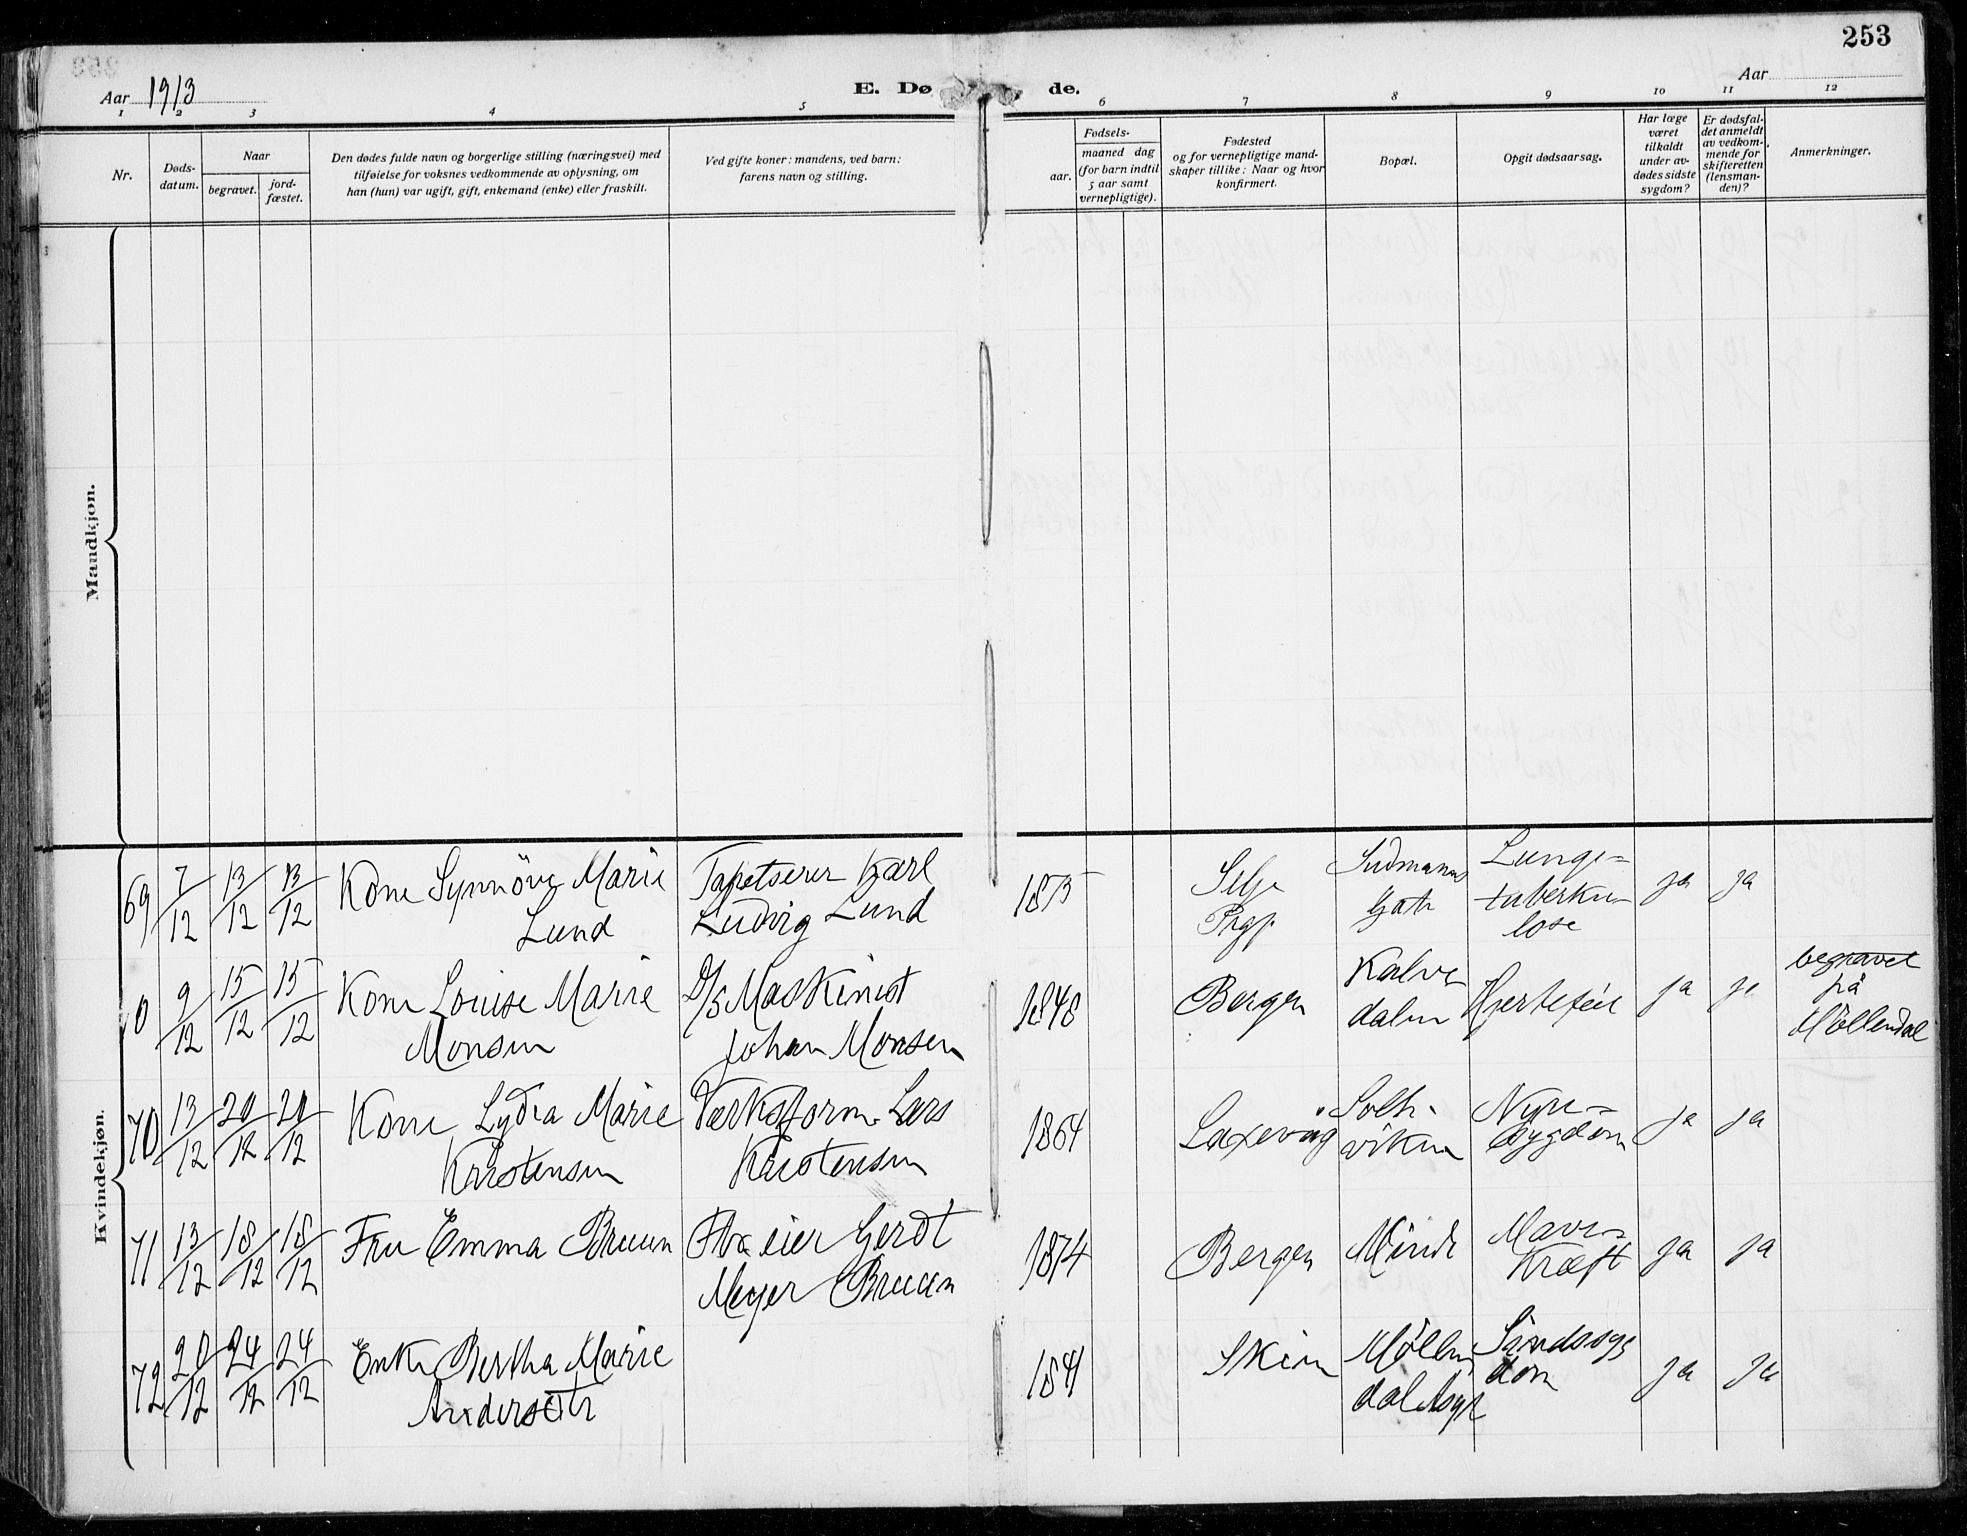 253
Aar 1913
E. Dø de.
Aar
1 2 3 4 5 6 7 8 9 10 11 12
Nr.
Døds-
datum.
Naar
begravet.
jord-
fæstet.
Den dødes fulde navn og borgerlige stilling (næringsvei) med
tilføielse for voksnes vedkommende av oplysning, om
han (hun) var ugift, gift, enkemand (enke) eller fraskilt.
Ved gifte koner: mandens, ved barn:
farens navn og stilling.
Fødsels-
aar.
maaned dag
(for barn indtil
5 aar samt
vernepligtige).
Fødested
og for vernepligtige mand-
skaper tillike: Naar og hvor
konfirmert.
Bopæl.
Opgit dødsaarsag.
Har læge
været
tilkaldt
under av-
dødes sidste
sygdom?
Er dødsfal-
det anmeldt
av vedkom-
mende for
skifteretten
(lensman-
den)?
Anmerkninger.
Mandkjøn.
Kvindekjøn.
69 7/12 13/12 13/12 Kone Synnöve Marie
Lund
Tapetserer Karl
Ludvig Lund
1873
Selje
Prgj.
Sudmanns
Gate
Lunge-
tuberku-
lose
ja ja
0 9/12 15/12 15/12 Kone Louise Marie
Monsen
D/S Maskinist
Johan Monsen
1848
Bergen
Kalve
dalen
Hjertefeil
ja ja
begravet
på
Möllendal
70 13/12 20/12 20/12 Kone Lydia Marie
Kristensen
Værksform. Lars
Kristensen
1864
Laxevåg
Solh.
viken
Nyre-
sygdom
ja ja
71 13/12 18/12 18/12 Fru Emma Bruun
eier Gerdt
Meyer Bruun
1874
Bergen
Minde
Mave-
Kræft
ja ja
72 20/12 24/12 24/12 Enke Bertha Marie
Andersdtr
1841
Skien
Møllen
dal Asyl
Sindssyg
dom
ja ja